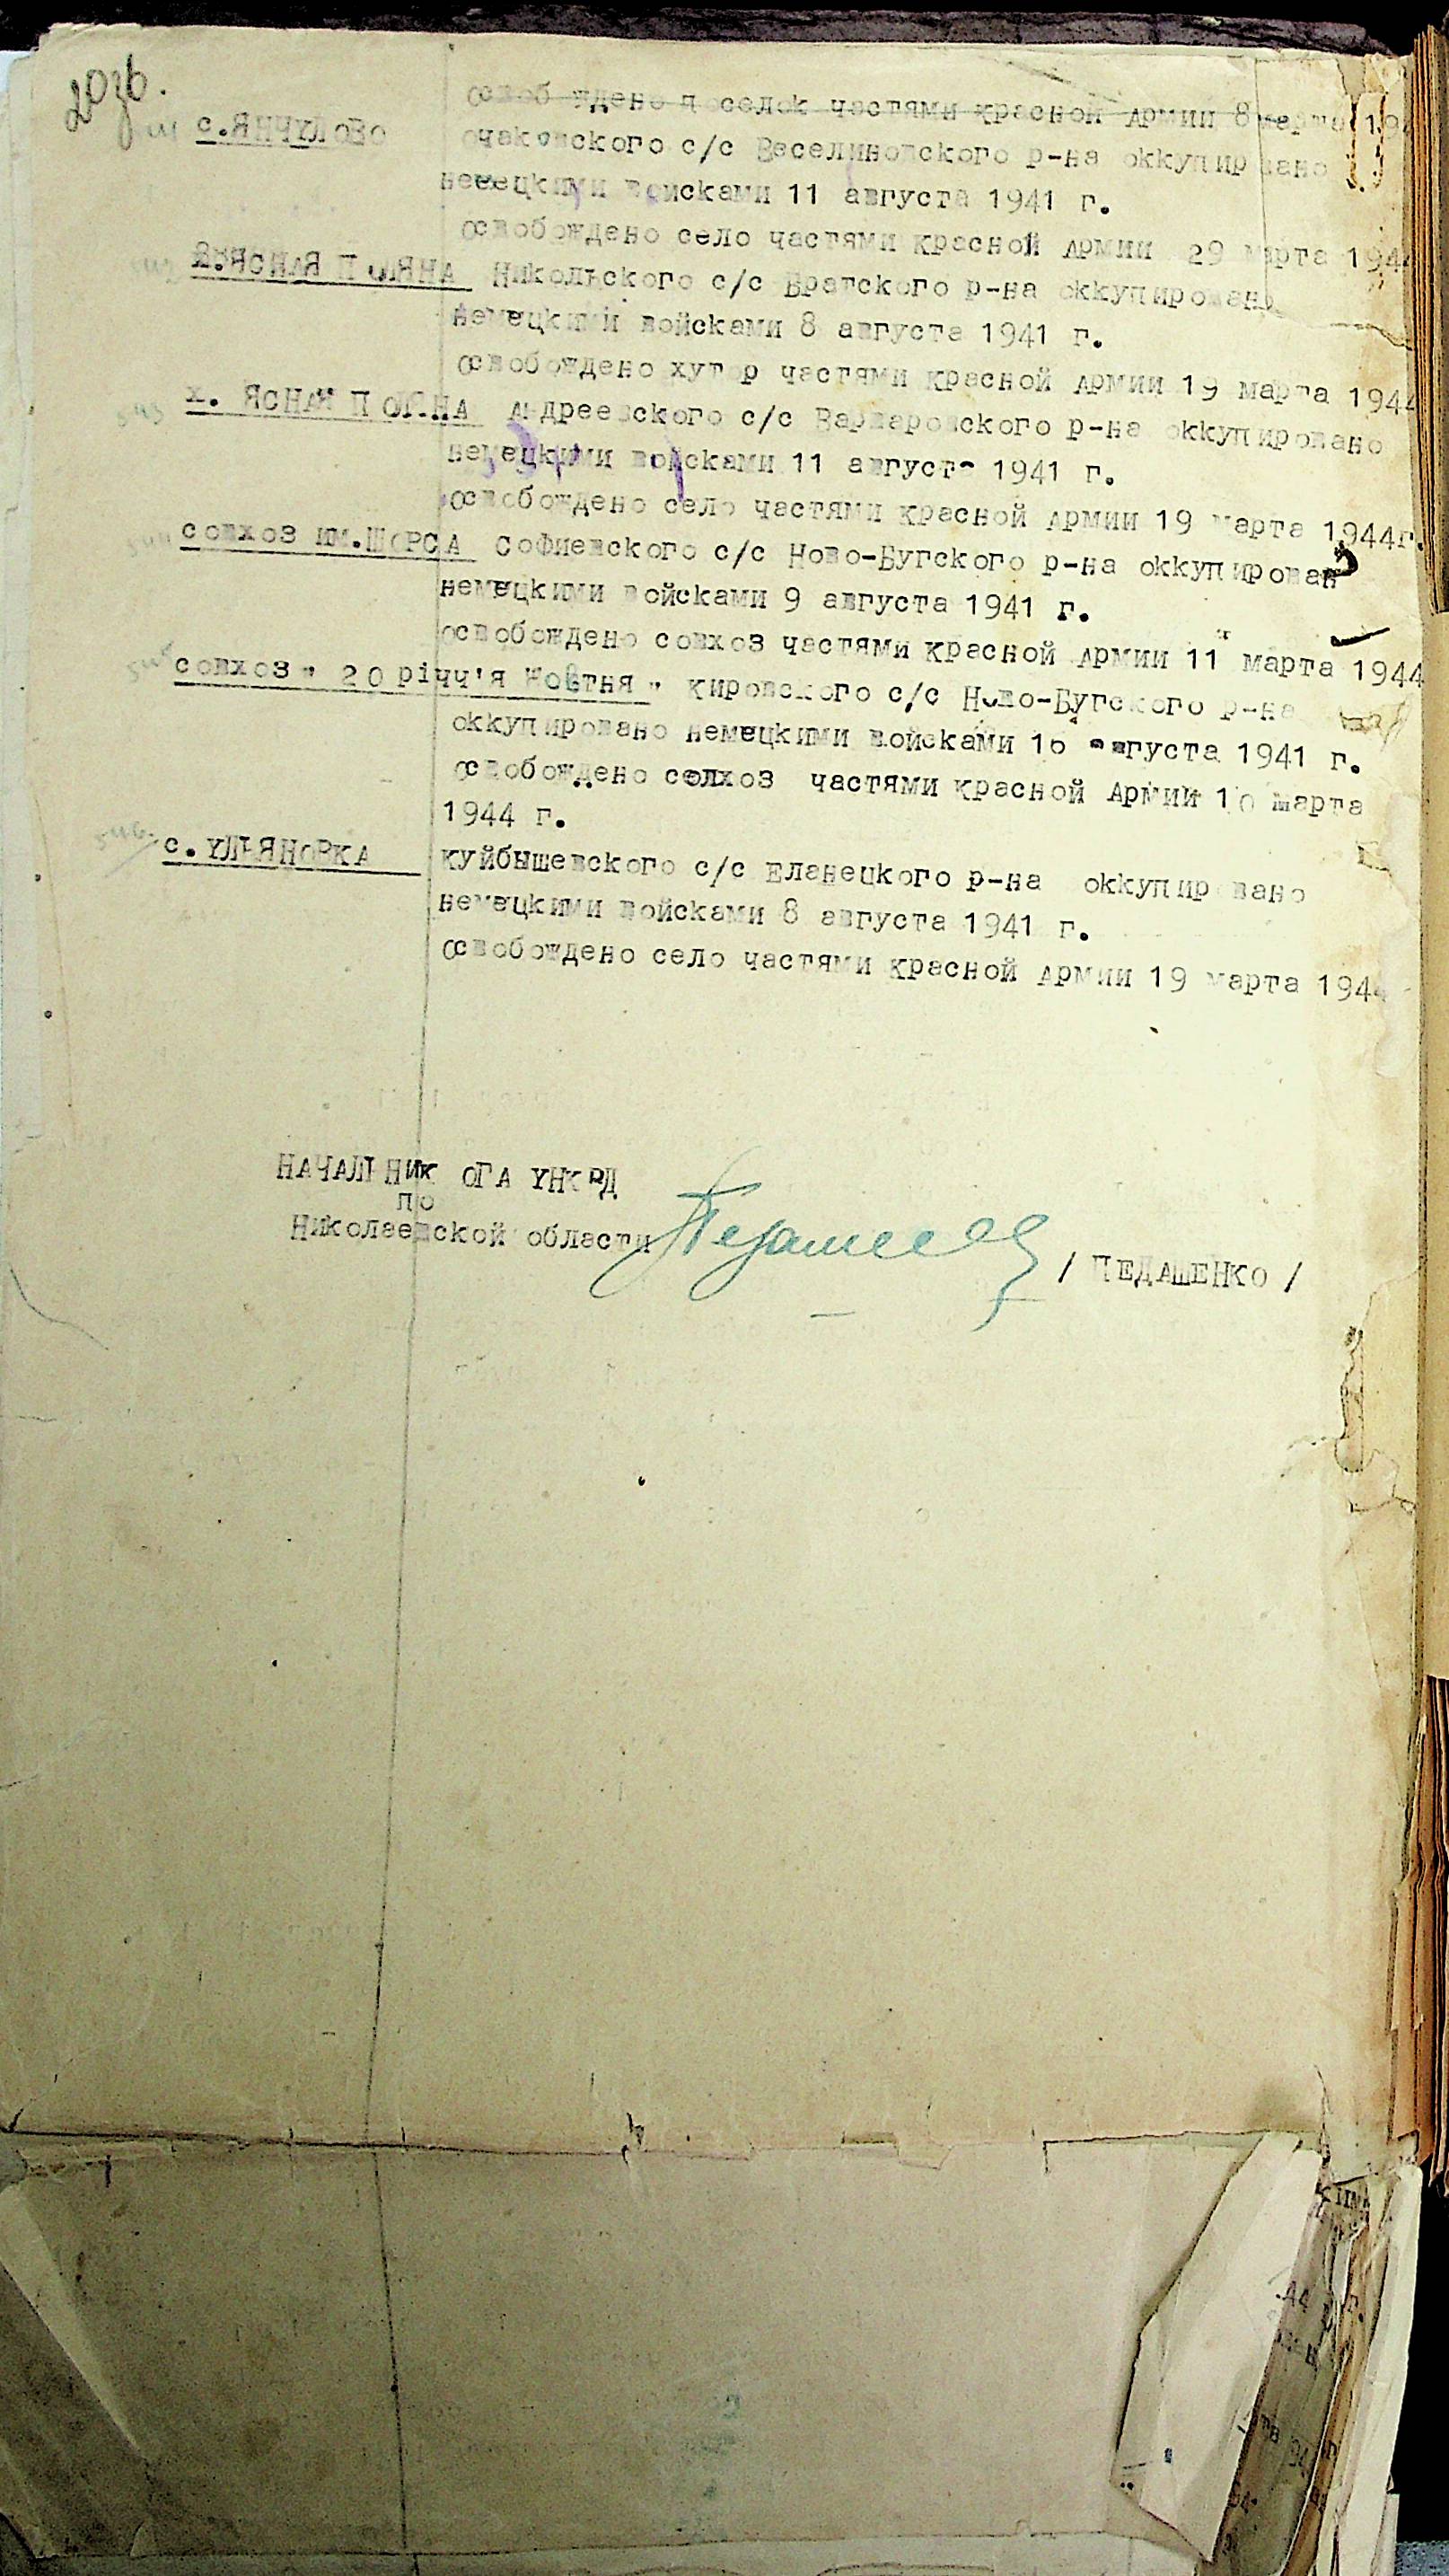 20зв.
освобождено поселок частями красной Армии 8 марта 194
с.ЯНЧУЛОВО очаковского с/с Веселиновского р-на оккупировано
немецкими войсками 11 августа 1941 г.
освобождено село частями красной Армии 29 марта 194
ЯСНАЯ ПОЛЯНА Никольского с/с Братского р-на оккупировано
немецкими войсками 8 августа 1941 г.
освобождено хутор частями красной Армии 19 марта 1944
х. ЯСНАЯ ПОЛЯНА Андреевского с/с Варваровского р-на оккупировано
немецкими войсками 11 августа 1941 г.
освобождено село частями красной Армии 19 марта 1944г.
543
544 совхоз им.ЩОРСА Софиевского с/с Ново-Бугского р-на оккупирован
немецкими войсками 9 августа 1941 г.
освобождено совхоз частями красной Армии 11 марта 1944
545 совхоз " 20 річч'я Жовтня " кировского с/с Ново-Бугского р-на
оккупировано немецкими войсками 16 августа 1941 г.
освобождено совхоз частями красной Армии 10 марта
1944 г.
546 с.УЛЬЯНОВКА куйбышевского с/с Еланецкого р-на оккупировано
немецкими войсками 8 августа 1941 г.
освобождено село частями красной Армии 19 марта 1944
НАЧАЛЬНИК ОГА УНКВД
по
Николаевской области / ПЕДАШЕНКО /